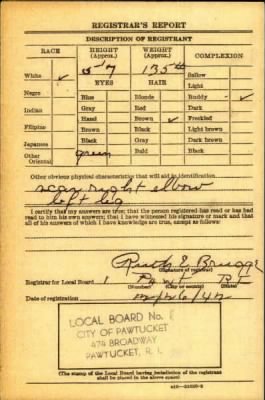 REGISTRAR'S REPORT
DESCRIPTION OF REGISTRANT
RACE HEIGHT (Approx.) WEIGHT (Approx.) COMPLEXION
White ✓ 5' 7 135 Sallow
EYES HAIR Light
Negro Blue Blonde Ruddy ✓
Gray Red Dark
Indian Hazel Brown ✓ Freckled
Filipino Brown Black Light brown
Japanese Black Gray Dark brown
Other Oriental green Bald Black
Other obvious physical characteristics that will aid in identification
scar right elbow
left leg
I certify that my answers are true; that the person registered has read or has had
read to him his own answers; that I have witnessed his signature or mark and that
all of his answers of which I have knowledge are true, except as follows:
Ruth E.
(Signature of registrar)
Registrar for Local Board 1 Pawt R I
(Number) (City or county) (State)
Date of registration
LOCAL BOARD No.
CITY OF PAWTUCKET
474 BROADWAY
PAWTUCKET, R. I.
(The stamp of the Local Board having jurisdiction of the registrant
shall be placed in the above space)